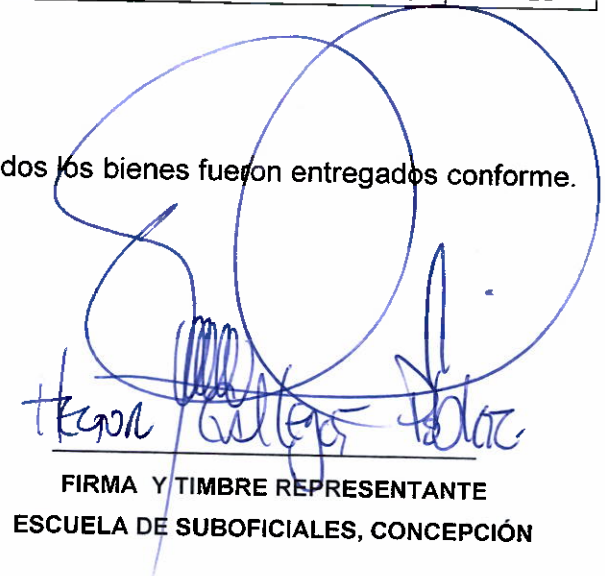 dos los bienes fueron entregados conforme.
Hector Gallegos
FIRMA Y TIMBRE REPRESENTANTE
ESCUELA DE SUBOFICIALES, CONCEPCIÓN